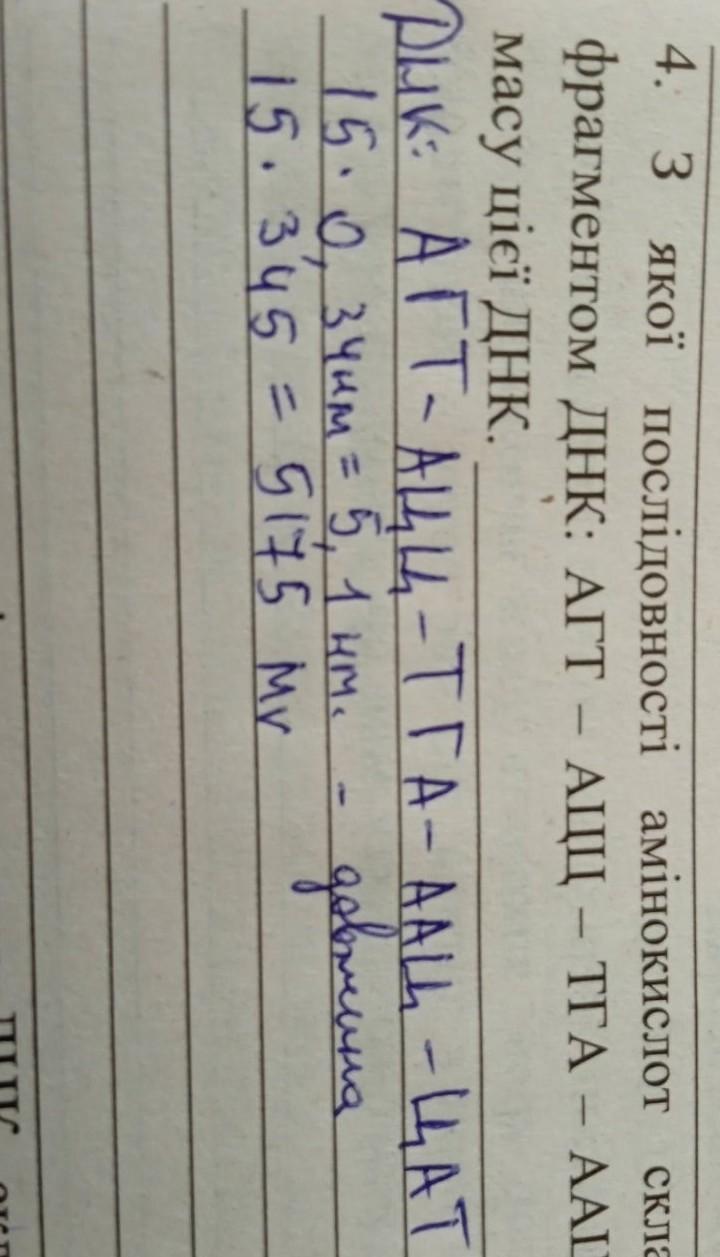 4. З якої послідовності амінокислот скла
фрагментом ДНК: АГТ – АЦЦ – ТГА – ААЦ
масу цієї ДНК.
ДНК: АГТ - АЦЦ - ТГА - ААЦ - ЦАТ
15 · 0,34нм = 5,1 нм. - довжина
15 · 345 = 5175 Mr
ДНК